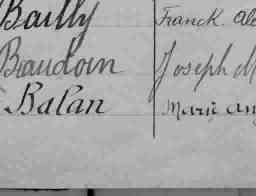 Bailly Franck. Al
Beaudoin Joseph M
Balan Marie An